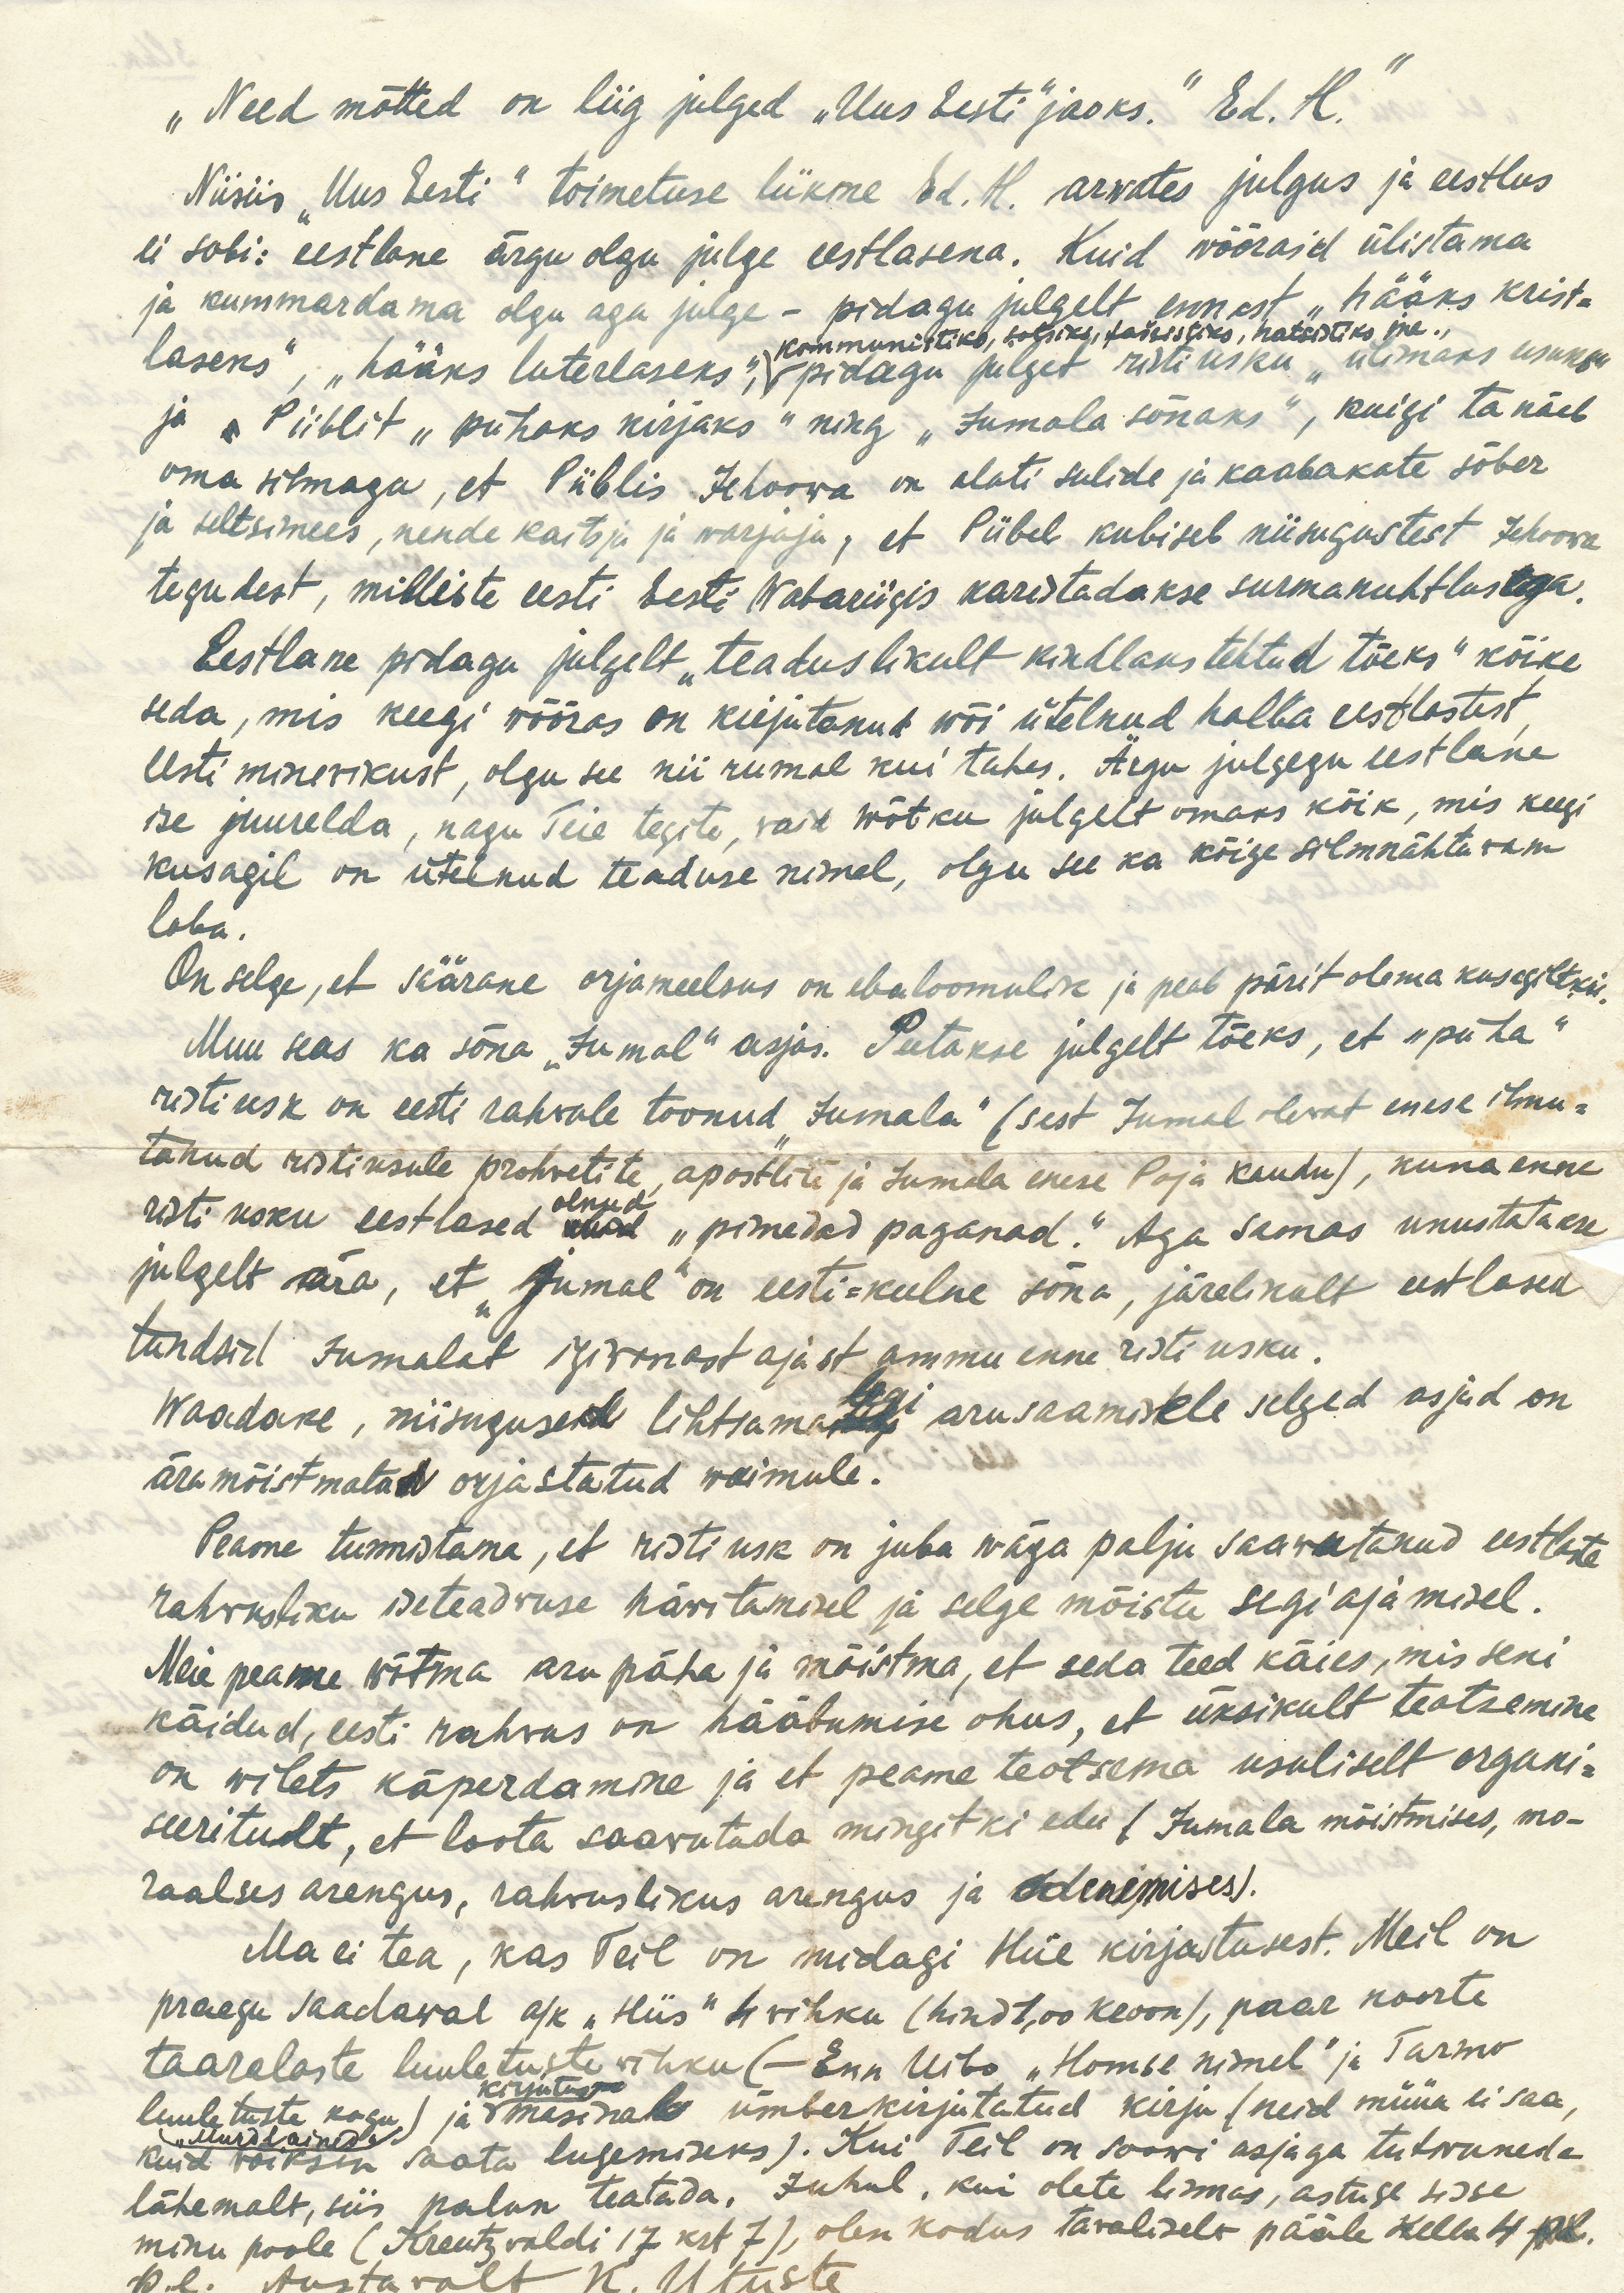 „Need mõtted on liig julged „Uus Eesti“ jaoks.“ Ed. H.“
Niisiis „Uus Eesti“ toimetuse liikme Ed. H. arwates julgus ja eestlus
ei sobi: eestlane ärgu olgu julge eestlasena. Kuid wööraid ülistama
ja kummardama olgu aga julge – pidagu julgelt ennast „hääks krist=
kommunistiks, sotsiks, fašistiks, natsistiks jne.,
laseks“, „hääks luterlaseks“, pidagu julgelt ristiusku „ülimaks usuks“
ja Piiblit „pühaks kirjaks“ ning „Jumala sõnaks“, kuigi ta näeb
oma silmaga, et Piiblis Jehoowa on alati sulide ja kaabakate sõber
ja seltsimees, nende kaitsja ja warjaja, et Piibel kubiseb niisugustest Jehoowa
tegudest, milliste eesti Eesti Wabariigis karistadakse surmanuhtlusega.
Eestlane pidagu julgelt „teaduslikult kindlaks tehtud tõeks“ kõike
seda, mis keegi wõõras on kirjutanud wõi ütelnud halba eestlastest,
Eesti minevikust, olgu see nii rumal kui tahes. Ärgu julgegu eestlane
ise juurelda, nagu Teie tegite, vaid wõtku julgelt omaks kõik, mis keegi
kusagil on ütelnud teaduse nimel, olgu see ka kõige silmnähtavam
laba.
On selge, et säärane orjameelsus on ebaloomulik ja peab pärit olema kusagiltki.
Muu seas ka sõna „Jumal“ asjas. Peetakse julgelt tõeks, et „püha“
ristiusk on eesti rahvale toonud „Jumala“ (sest Jumal olevat enese ilmu=
tanud ristiusule prohvetite, apostlite ja Jumala enese Poja kaudu), kuna enne
olnud
risti usku eestlased „pimedad paganad“. Aga samas unustatakse
julgelt ära, et „Jumal“ on eesti=keelne sõna, järelikult eestlased
tundsid Jumalat igivanast ajast ammu enne risti usku.
legi
Waadake, niisugused lihtsama arusaamisele selged asjad on
äramõistmatad orjastatud waimule.
Peame tunnistama, et risti usk on juba wäga palju saawutanud eestlaste
rahvusliku iseteadvuse häwitamisel ja selge mõistu segi ajamisel.
Meie peame wõtma aru pähe ja mõistma, et seda teed käies, mis seni
käidud, eesti rahvas on hääbumise ohus, et üksikult teotsemine
on wilets käperdamine ja et peame teotsema usuliselt organi=
seeritudlt, et loota saawutada mingitki edu (Jumala mõistmises, mo-
raalses arengus, rahvuslikus arengus ja edenemises).
Ma ei tea, kas Teil on midagi Hiie kirjastusest. Meil on
praegu saadawal a/k „Hiis“ 4 wihku (hind 1,00 kroon), paar noorte
taaralaste luuletuste vihku (– Enn Uibo „Homse nimel“ ja Tarmo
kirjutus
luuletuste kogu) ja masinal ümberkirjutatud kirju (neid müüa ei saa,
„Murdlained“
kuid võiksin saata lugemiseks). Kui Teil on soowi asjaga tutwuneda
lähemalt, siis palun teatada. Juhul, kui olete linnas, astuge sisse
minu poole (Kreutzvaldi 17 krt 7), olen kodus tavaliselt pääle kella 4
p.l. Austavalt K. Utuste